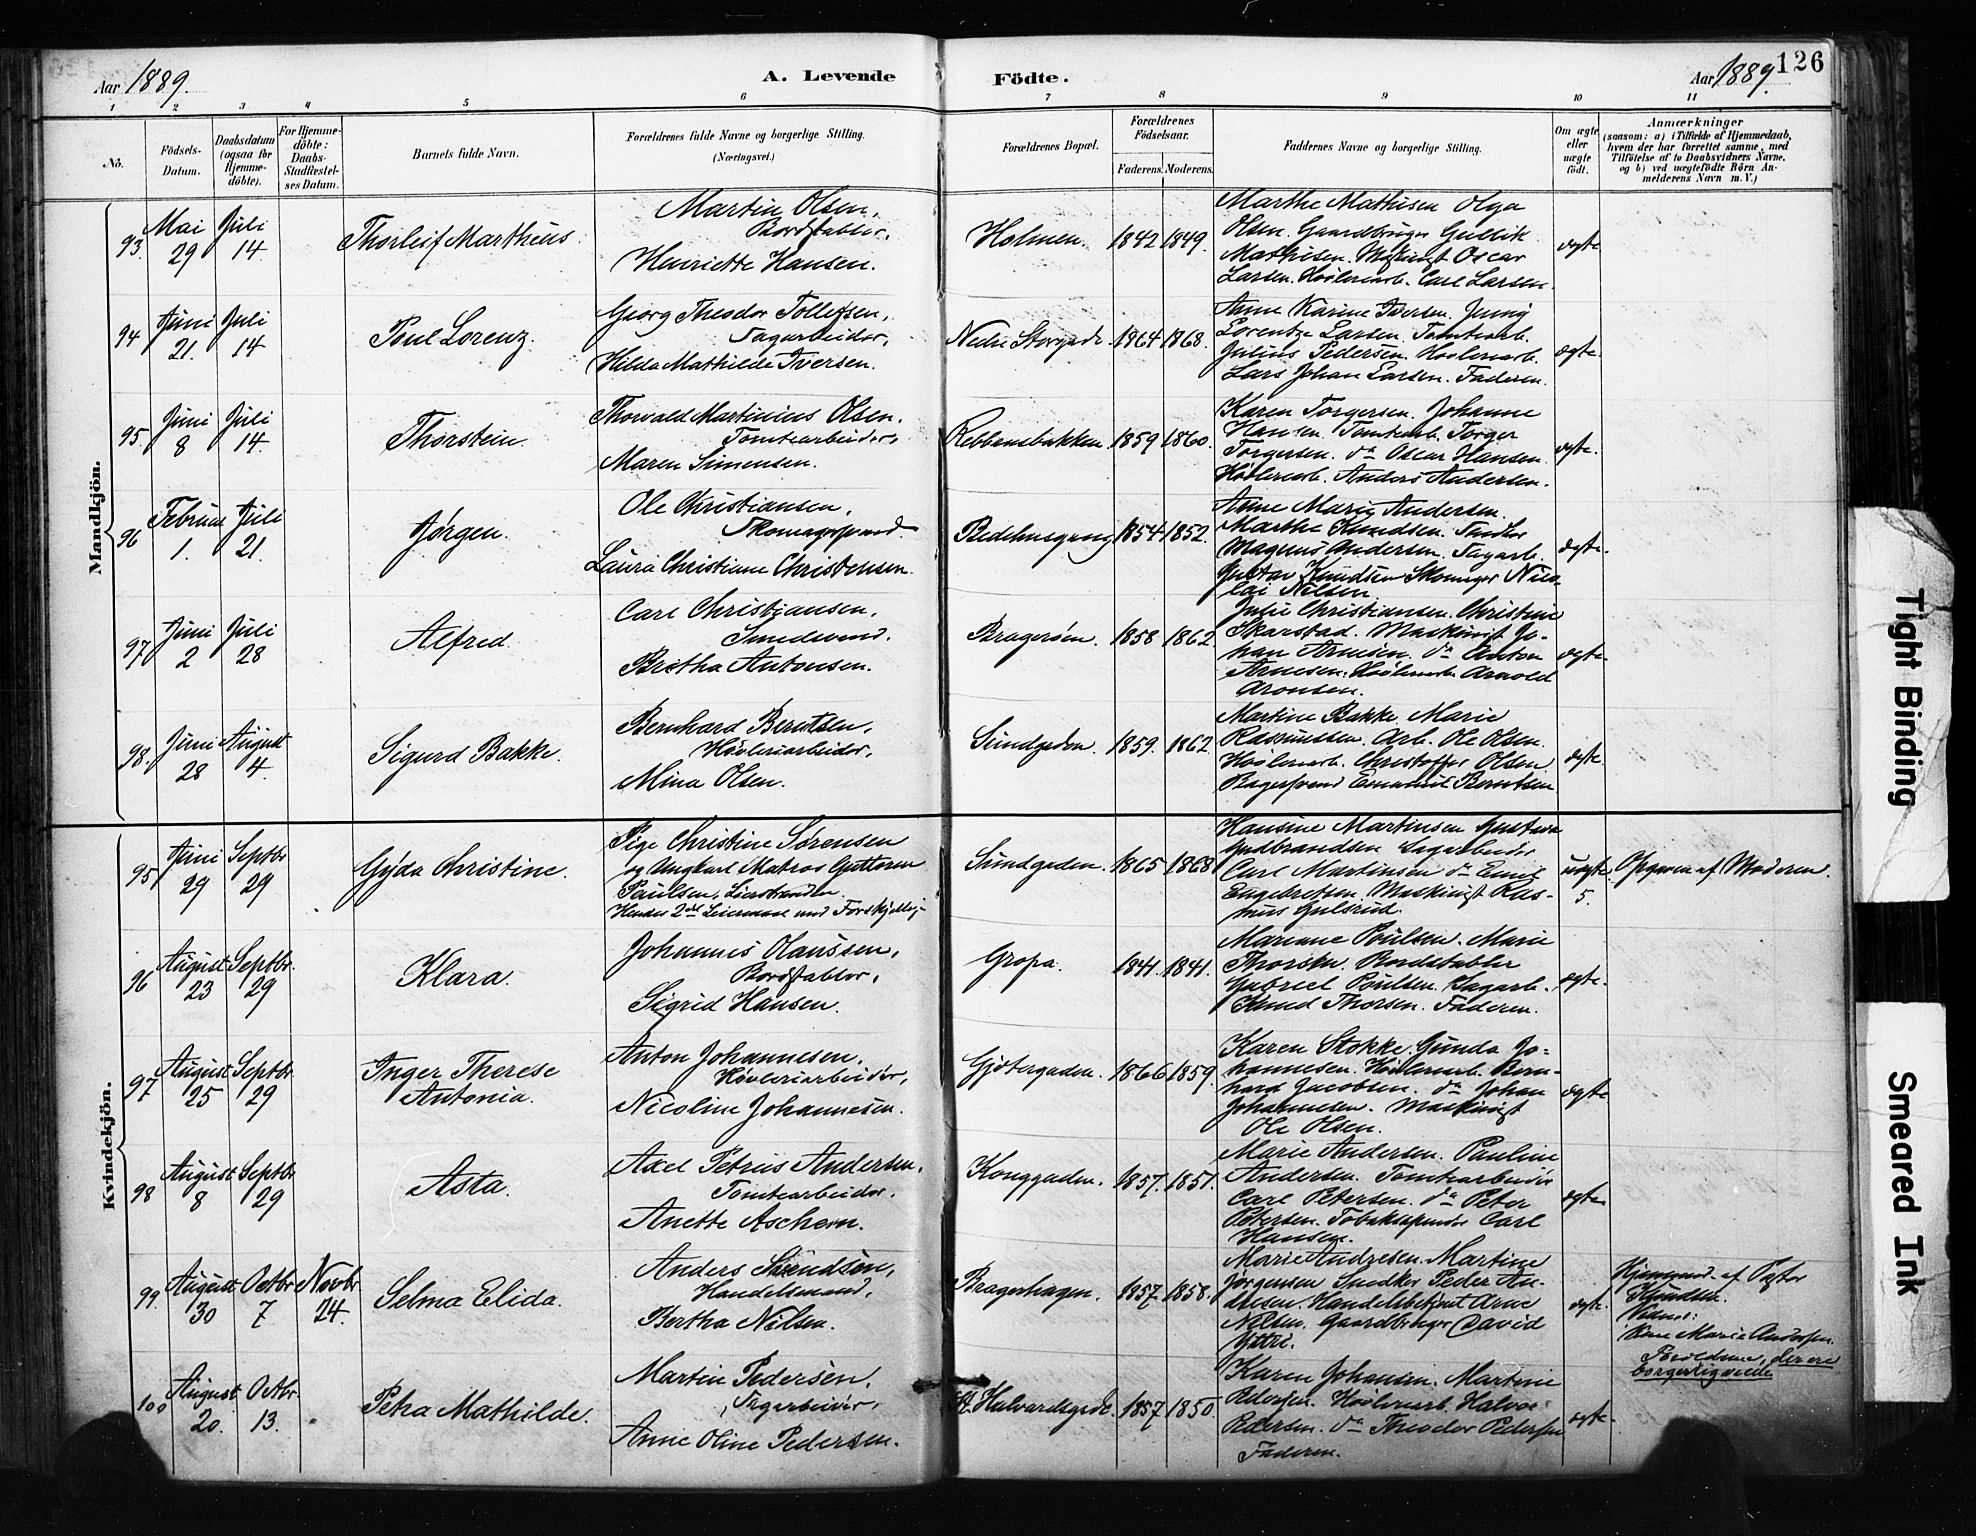 Aar 1889.
A. Levende
Födte.
Aar 1889.
126
1 2 3 4 5 6 7 8 9 10 11
No.
Födsels-
Datum.
Daabsdatum
(ogsaa for
Hjemme-
döbte).
For Hjemme-
döbte:
Daabs-
Stadfæstel-
ses Datum.
Barnets fulde Navn.
Forældrenes fulde Navne og borgerlige Stilling.
(Næringsvei.)
Forældrenes Bopæl.
Forældrenes
Födselsaar.
Faderens. Moderens.
Faddernes Navne og borgerlige Stilling.
Om ægte
eller
uægte
födt.
Anmærkninger
(saasom: a) i Tilfælde af Hjemmedaab,
hvem der har forrettet samme, med
Tilföielse af to Daabsvidners Navne,
og b) ved uægtefödte Börn An-
melderens Navn m. V.)
Mandkjön.
93.
Mai
29
Juli
14
Thorleif Martheus.
Martin Olsen,
Bordstabler,
Henriette Hansen.
Holmen.
1842
1849.
Marthe Mathisen Olga
Olsen. Gaardbruger Gullik
Mathisen. Oscar
Larsen. Høvleriarb. Carl Larsen.
ægte
94
Juni
21.
Juli
14
Poul Lorenz.
Georg Theodor Tollefsen,
Sagarbeider,
Hilda Mathilde Iversen.
Nedre Storgade.
1864
1868.
Anne Karine Iversen. Jenny
Lorentze Larsen. Tomtearb.
Julius Pedersen. Høvleriarb.
Lars Johan Larsen. Faderen.
ægte.
95.
Juni
8
Juli
14.
Thorstein.
Thorvald Martinius Olsen.
Tomtearbeider,
Maren Simensen.
Rebbansbakken.
1859
1860.
Karen Torgersen. Johanne
Hansen. Tomtearb. Torger
Torgersen. do Oscar Hansen.
Høvleriarb. Anders Andersen.
ægte.
96
Februar
1.
Juli
21.
Jørgen.
Ole Christiansen,
Skomagersvend.
Laura Christiane Christensen.
Bedehusgang
1854
1852.
Anne Marie Andersen.
Marthe Knudsen. Snedker
Magnus Andersen. Sagarb.
Gustav Knudsen Skomager Nico-
lai Nilsen.
ægte.
97
Juni
2
Juli
28
Alfred.
Carl Christiansen,
Smedsvend.
Bertha Antonsen.
Bragerøen.
1858
1862.
Julie Christiansen. Christine
Skarstad. Maskinist Jo-
han Arnesen. do Anton
Arnesen. Høvleriarb. Arnold
Aronsen.
ægte.
98.
Juni
28
August
4.
Sigurd Bakke.
Bernhard Berntsen,
Høvleriarbeider,
Mina Olsen.
Sundgaden.
1859.
1862.
Martine Bakke. Marie
Rasmussen. Arb. Ole Olsen.
Høvleriarb. Christoffer Olsen
Bagersvend Emanuel Berntsen
ægte.
Kvindekjön.
95
Juni
29
Septbr
29
Gyda Christine.
Pige Christine Sørensen
og Ungkarl Matros Guttorm
Paulsen,
Hendes 2det Leiermaal med Forskjellig-
Sundgaden.
1865
1868
Hansine Martinsen Gustava
Gudbrandsen Sagarbeider
Carl Martinsen do Emil
Engebretsen. Maskinist Ras-
mus Gulsrud.
uægte.
5.
Opgaven af Moderen.
96
August
23
Septbr.
29
Klara.
Johannes Olaussen,
Bordstabler,
Sigrid Hansen.
Gropa.
1841.
1841.
Mariane Poulsen. Marie
Thorsen. Bordstabler
Gabriel Poulsen. Sagarb.
Knud Thorsen. Faderen.
ægte.
97
August
25
Septbr
29
Inger Therese
Antonia.
Anton Johannesen.
Høvleriarbeider,
Nicoline Johannesen.
Gjetergaden.
1866
1859.
Karen Stokke. Gunda Jo-
hannesen. Høvleriarb. Bern-
hard Jacobsen. do Johan
Johannesen. Maskinist
Ole Olsen.
ægte
98
August
8
Septbr
29
Asta.
Axel Petrus Andersen,
Tomtearbeider.
Anette Aschem.
Konggaden.
1857.
1851.
Marie Andersen. Pauline
Andersen. Tomtearbeider
Carl Petersen. do Peter
Petersen. Carl
Hansen.
ægte
99
August
30
Octbr
7
Novbr
24.
Selma Elida.
Anders Svendsen,
Handelsmand,
Bertha Nilsen.
Bragenhagen.
1857.
1858.
Marie Andresen. Martine
Jørgensen Snedker Peder An-
dresen. Handelsbetjent Arne
Nilsen. Gaardbruger David
Yttri.
ægte.
Hjemmed. af Pastor
Knudsen.
Vidner:
Marie Andersen.
Forældrene, der ere
borgerlig viede
100
August
20.
Octbr.
13.
Petra Mathilde.
Martin Pedersen,
Sagarbeider,
Anne Oline Pedersen.
St. Halvardsgade.
1857
1850.
Karen Johansen. Martine
Pedersen. Høvleriarb. Halvor
Pedersen. do Theodor Pedersen
Faderen.
ægte
Tight Binding
Smeared Ink